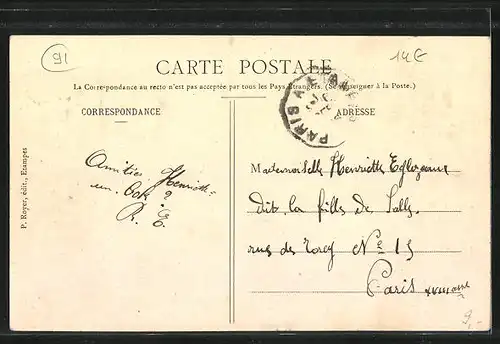 91
14€
CARTE POSTALE
La Correspondance au recto n'est pas acceptée par tous les Pays Étrangers. (Se renseigner à la Poste.)
CORRESPONDANCE
ADRESSE
PARIS A
P. Royer, édit., Etampes
Amitiés Henriette
R. E.
Mademoiselle Henriette
dit la fille de Sally
rue de Torcy No 15
Paris
9,-